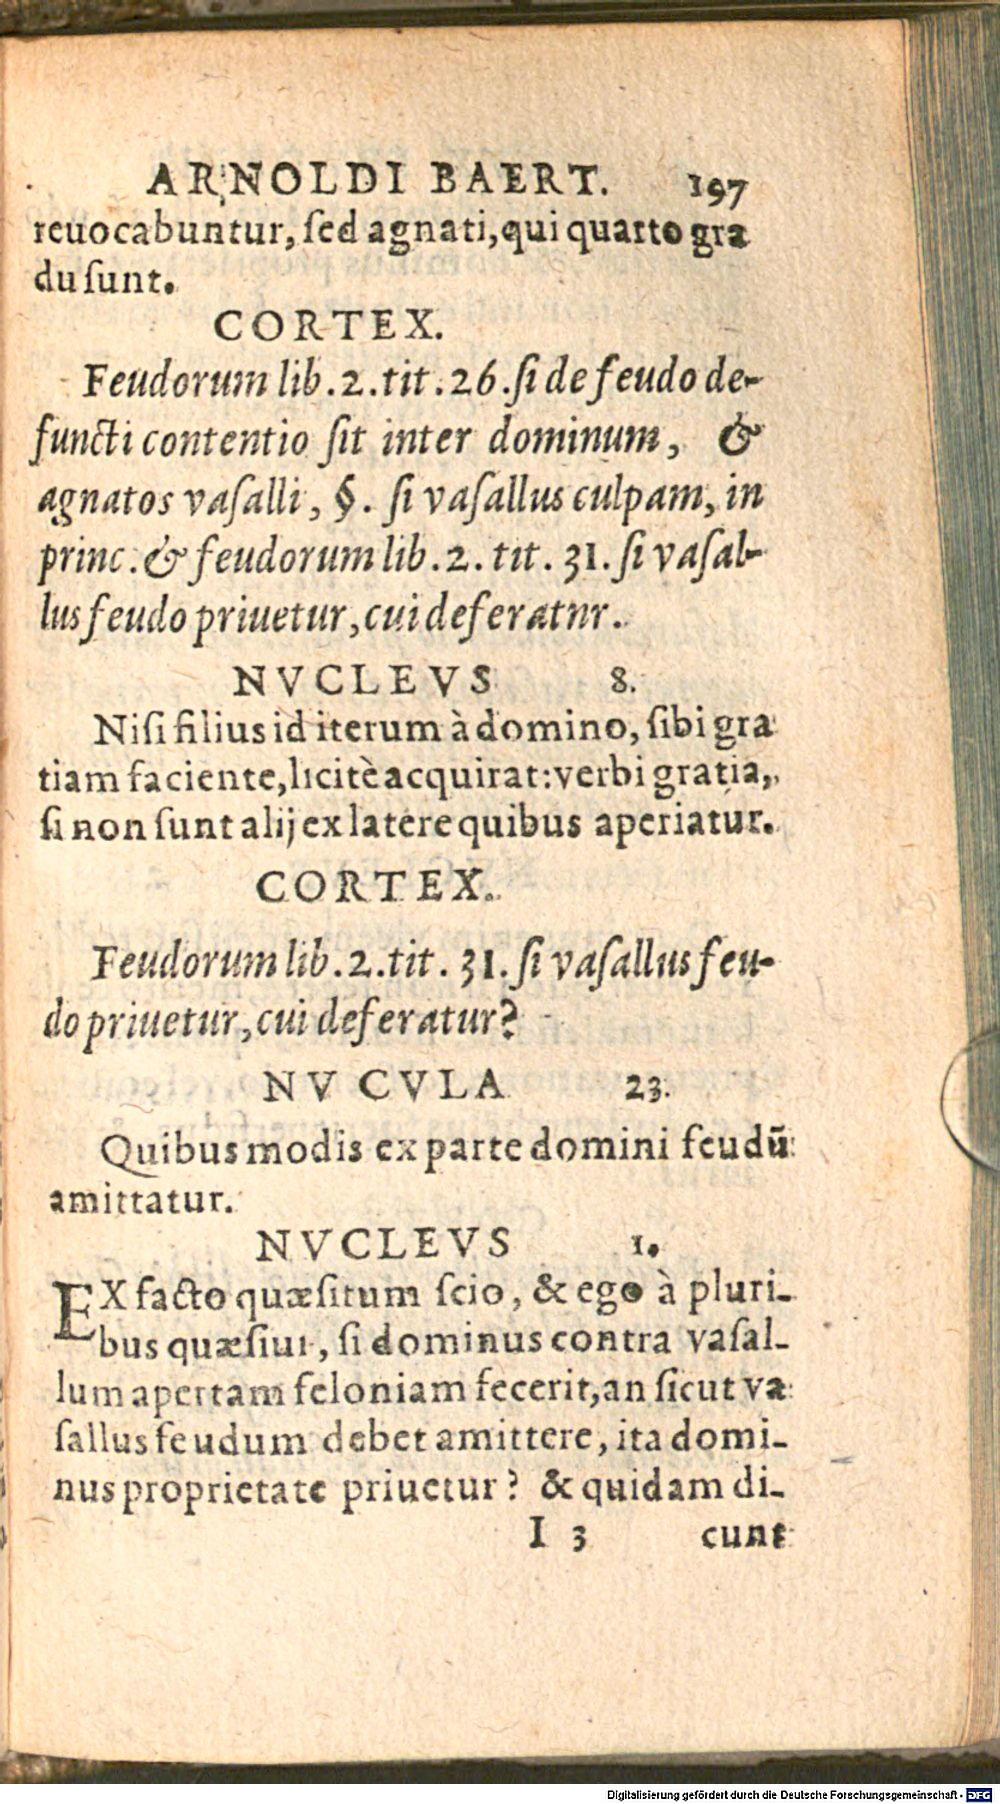 ARNOLDI BAERT. 197
reuocabuntur, ſed agnati, qui quarto gra
du ſunt.
CORTEX.
Feudorum lib. 2. tit. 26. ſi de feudo de-
functi contentio ſit inter dominum, &
agnatos vaſalli, §. ſi vaſallus culpam, in
princ. & feudorum lib. 2. tit. 31. ſi vaſal-
lus feudo priuetur, cui deferatnr.
NVCLEVS 8.
Niſi filius id iterum à domino, ſibi gra
tiam faciente, licitè acquirat: verbi gratia,
ſi non ſunt alij ex latere quibus aperiatur.
CORTEX.
Feudorum lib. 2. tit. 31. ſi vaſallus feu-
do priuetur, cui deferatur?
NVCVLA 23.
Quibus modis ex parte domini feudū
amittatur.
NVCLEVS 1.
EX facto quæſitum ſcio, & ego à pluri-
bus quæſiui, ſi dominus contra vaſal-
lum apertam feloniam fecerit, an ſicut va
ſallus feudum debet amittere, ita domi-
nus proprietate priuetur? & quidam di-
I 3 cunt
Digitalisierung gefördert durch die Deutsche Forschungsgemeinschaft - DFG